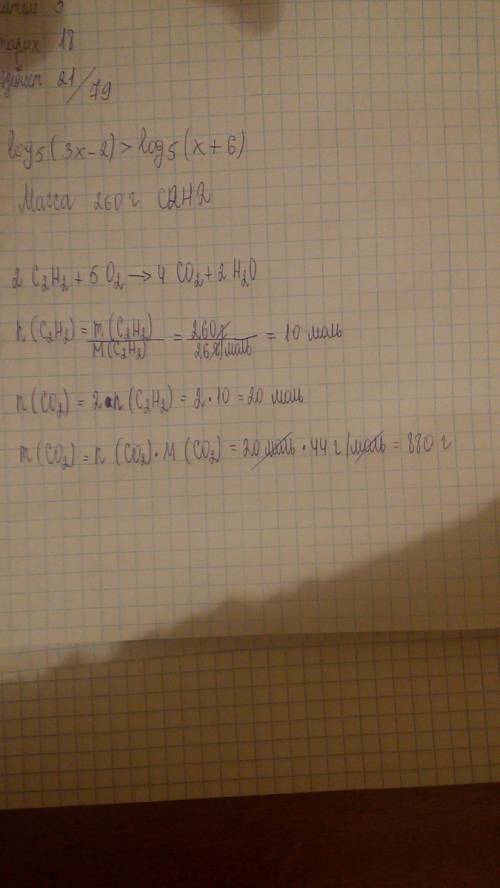 18
21/79
log₅(3x-2)>log₅(x+6)
Масса 260 г C2H2
2 C₂H₂ + 5 O₂ → 4 CO₂ + 2 H₂O
n(C₂H₂) = m(C₂H₂)/M(C₂H₂) = 260г/26г/моль = 10 моль
n(CO₂) = 2·n(C₂H₂) = 2·10 = 20 моль
m(CO₂) = n(CO₂)·M(CO₂) = 20 моль · 44 г/моль = 880 г